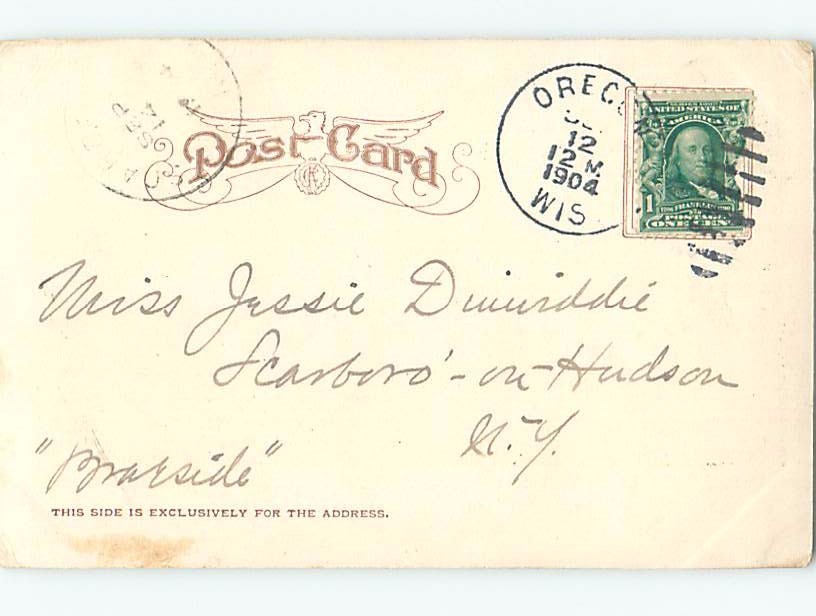 Post Card
OREGON
12
12 M.
1904
WIS
SEP
SERIES 1902
UNITED STATES OF
AMERICA
1
FRANKLIN
POSTAGE
ONE CENT
Miss Jessie Dinwiddie
Scarboro'-on-Hudson
N.Y.
"Briarside"
THIS SIDE IS EXCLUSIVELY FOR THE ADDRESS.